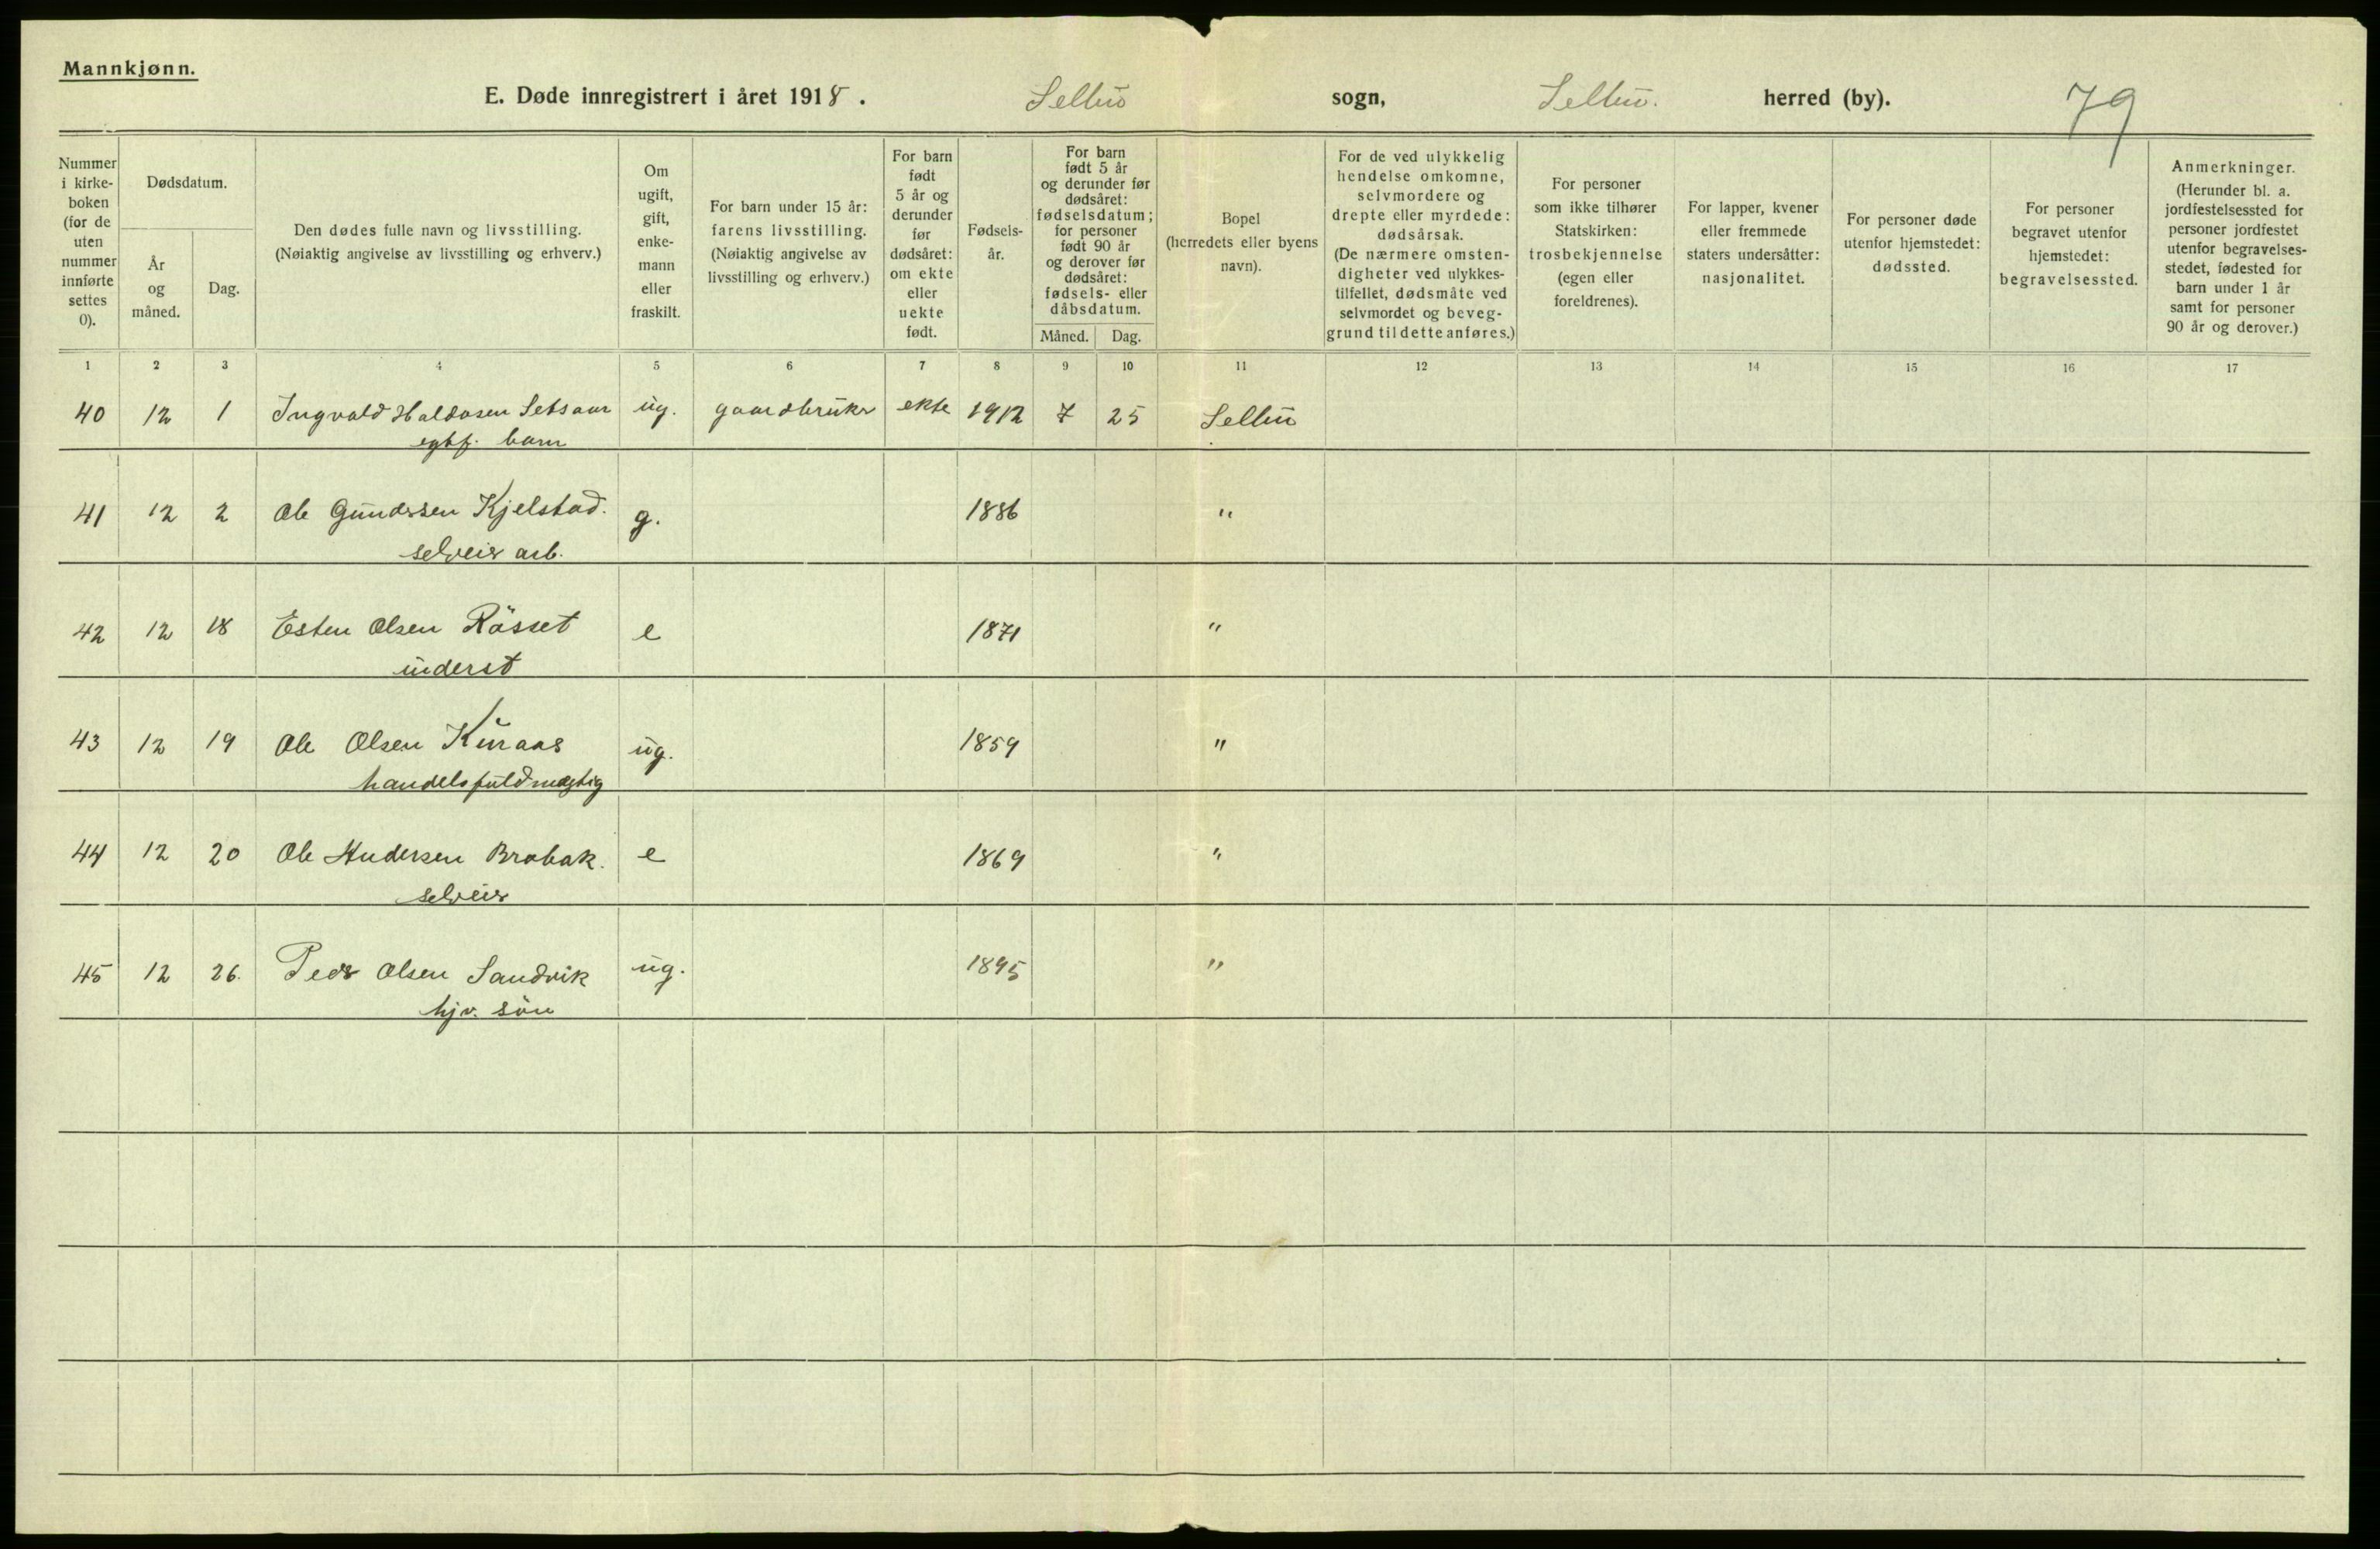 Mannkjønn.
E. Døde innregistrert i året 1918. Selbu sogn, Selbu. herred (by). 79
Nummer i kirke-boken (for de uten nummer innførte settes 0).
Dødsdatum.
År og måned.
Dag.
Den dødes fulle navn og livsstilling.
(Nøiaktig angivelse av livsstilling og erhverv.)
Om ugift, gift, enke-mann eller fraskilt.
For barn under 15 år: farens livsstilling.
(Nøiaktig angivelse av livsstilling og erhverv.)
For barn født 5 år og derunder før dødsåret: om ekte eller uekte født.
Fødsels-år.
For barn født 5 år og derunder før dødsåret: fødselsdatum; for personer født 90 år og derover før dødsåret: fødsels- eller dåbsdatum.
Måned. Dag.
Bopel (herredets eller byens navn).
For de ved ulykkelig hendelse omkomne, selvmordere og drepte eller myrdede: dødsårsak.
(De nærmere omsten-digheter ved ulykkes-tilfellet, dødsmåte ved selvmordet og beveg-grund til dette anføres.)
For personer som ikke tilhører Statskirken: trosbekjennelse (egen eller foreldrenes).
For lapper, kvener eller fremmede staters undersåtter: nasjonalitet.
For personer døde utenfor hjemstedet: dødssted.
For personer begravet utenfor hjemstedet: begravelsessted.
Anmerkninger.
(Herunder bl. a. jordfestelsessted for personer jordfestet utenfor begravelses-stedet, fødested for barn under 1 år samt for personer 90 år og derover.)
1 2 3 4 5 6 7 8 9 10 11 12 13 14 15 16 17
40 12 1 Ingvald Haldosen Setsaas ug. gaardbruker ekte 1912 7 25 Selbu
egtf. barn
41 12 2 Ole Gundersen Kjelstad. g. 1886 "
selveier arb.
42 12 18 Esten Olsen Rösset e 1871 "
inderst
43 12 19 Ole Olsen Kuraas ug. 1859 "
handelsfuldmægtig
44 12 20 Ole Andersen Brobak. e 1869 "
selveier
45 12 26. Peder Olsen Sandvik ug. 1895 "
hjv. sön